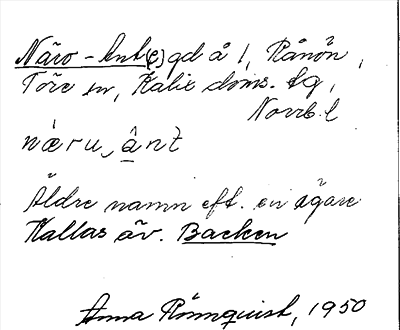 Näro-Ant(e) gd å l, Rånön,
Töre sn, Kalix doms. tg,
Norrb. l
næru,ânt
Äldre namn eft. en ägare
Kallas äv. Backen
Anna Rönnquist, 1950